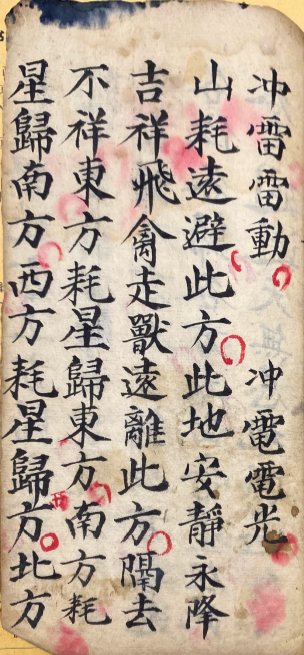 冲雷雷動 冲電電光
山耗遠避此方此地安靜永降
吉祥飛禽走獸遠離此方隔去
不祥東方耗星歸東方南方耗
星歸南方西方耗星歸西方北方